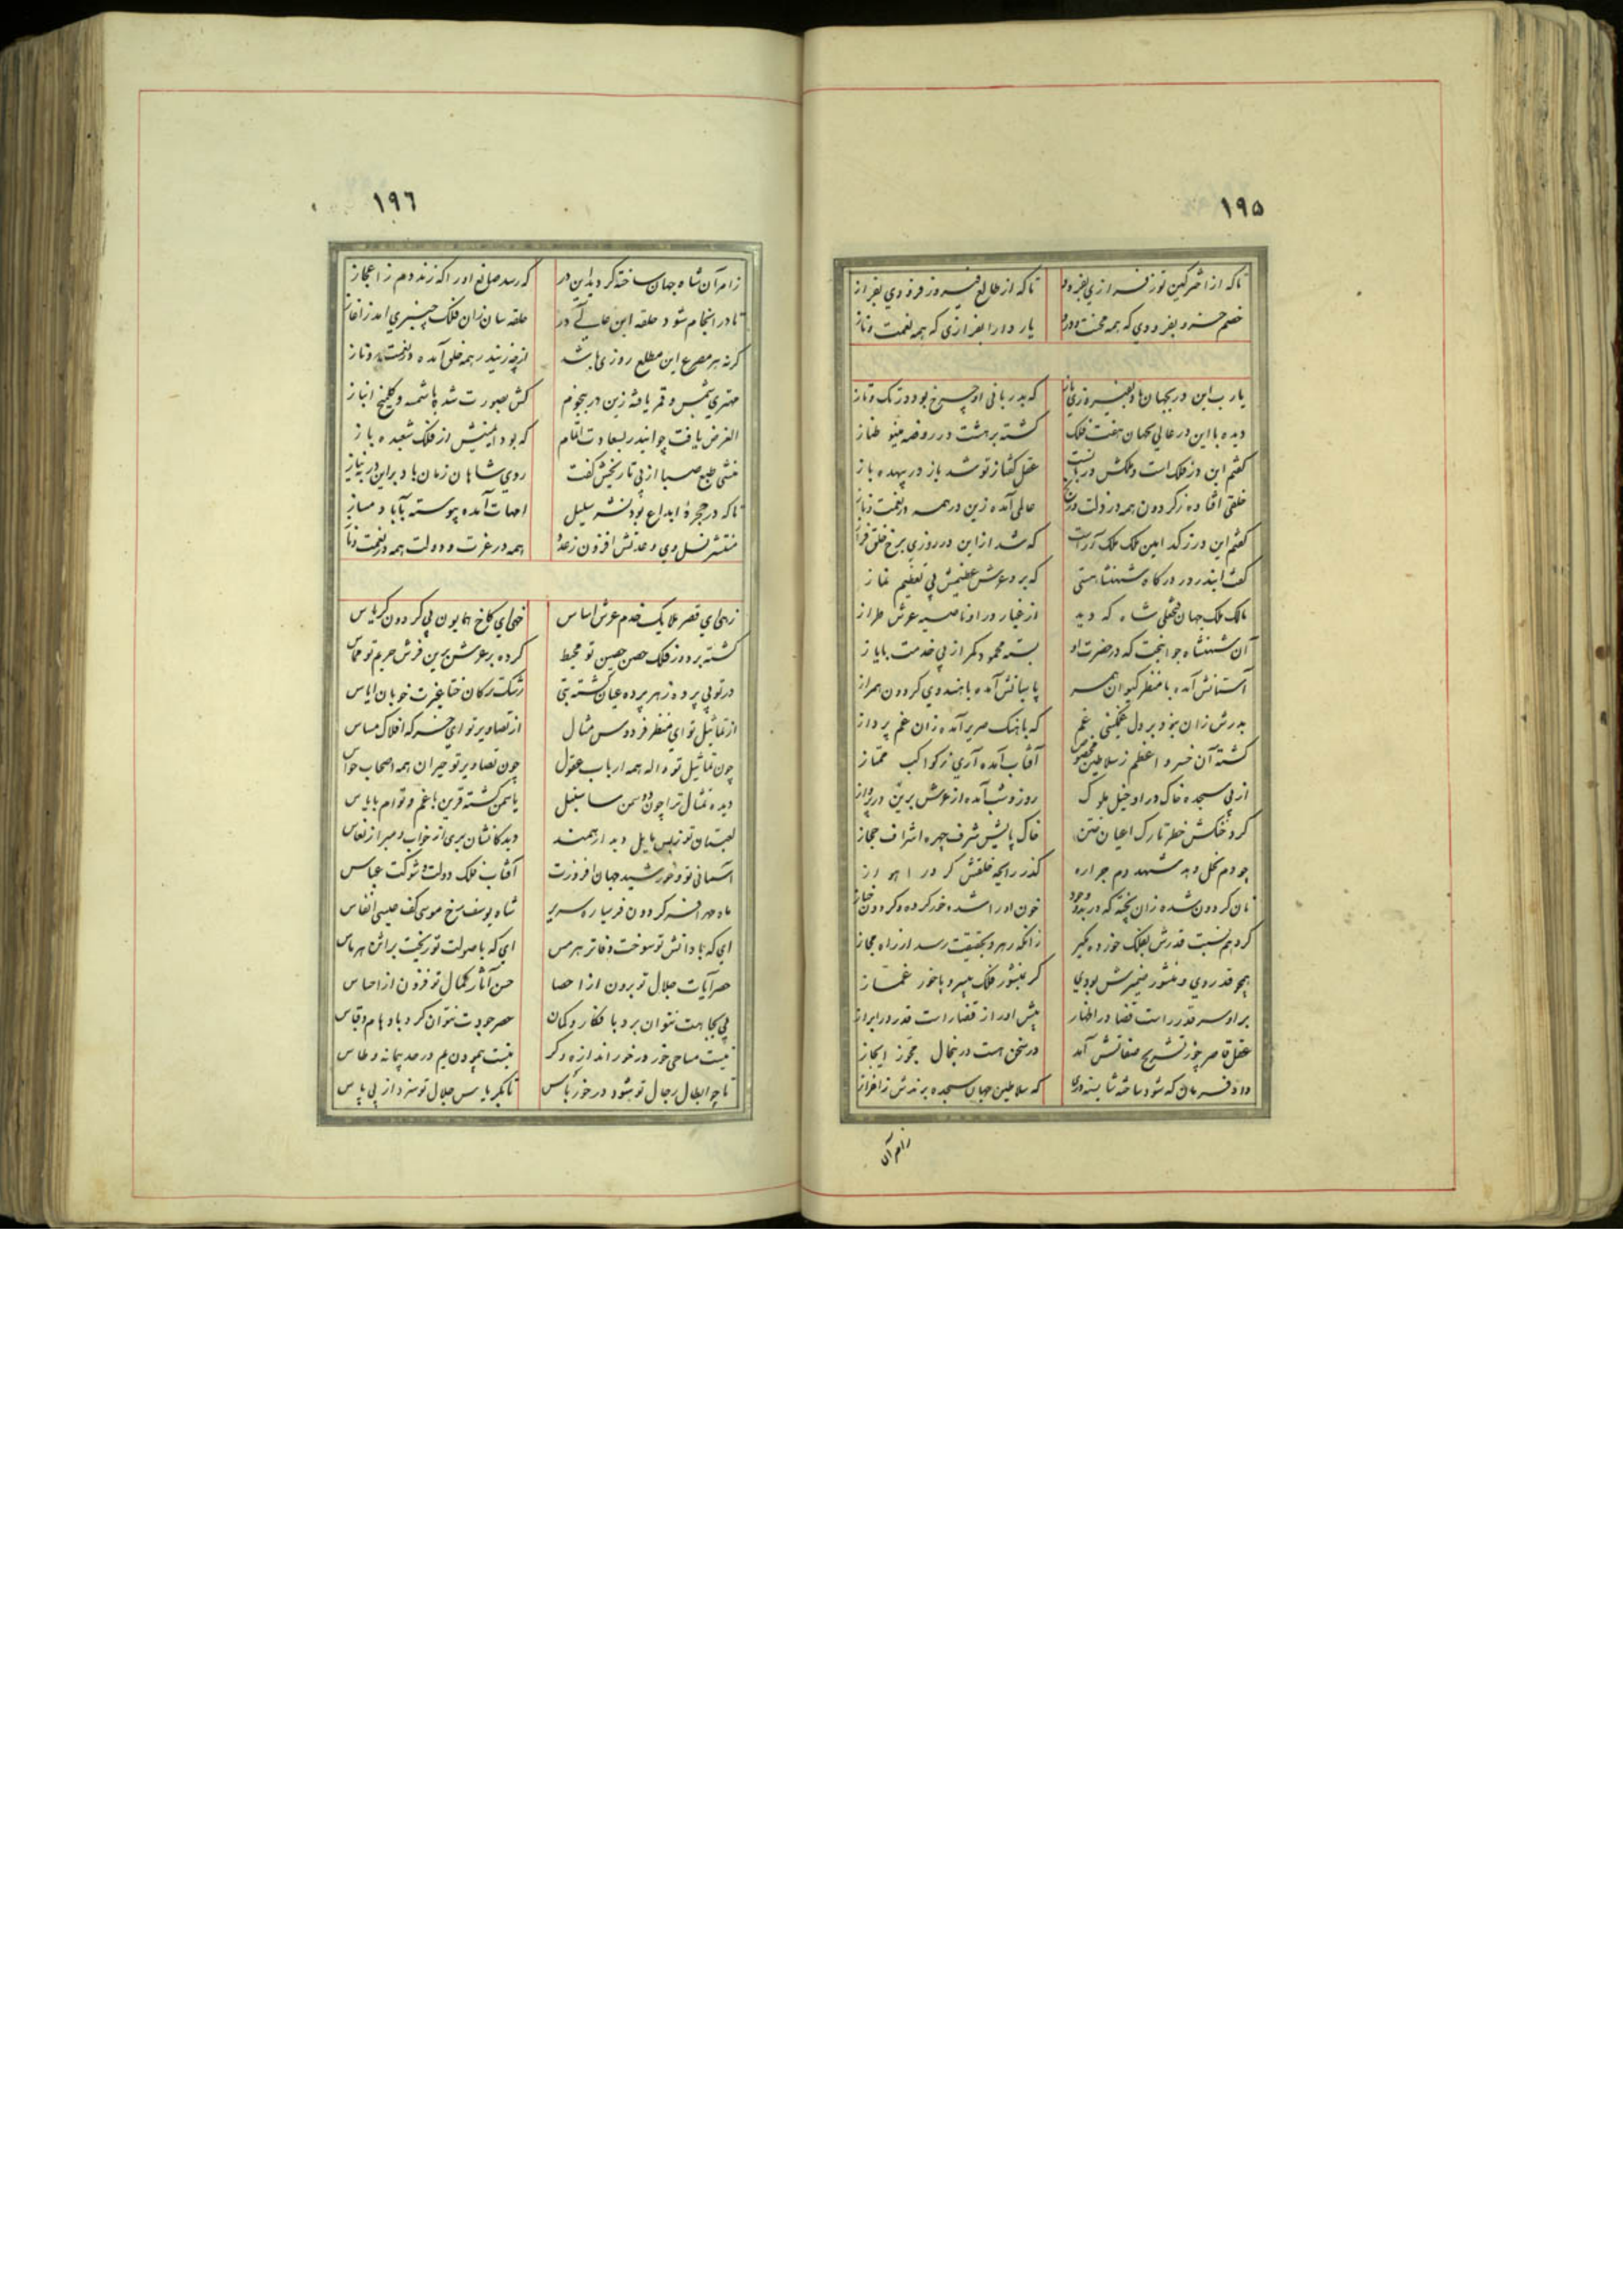 ۱۹۵
تا که از اختر کین توز فرازی بفرود تا که از طالع فیروز فرودی بفراز
خصم خسرو بفرودی که همه محنت و درد یار دارا بفرازی که همه نعمت و ناز
یارب این در بجهان باد بفیروزی باز که بدربانی او چرخ بود در تک و تاز
دیده با این در عالی بجهان هفت فلک گشته بر هشت در روضه مینو طناز
گفتم این در فلک است و ملکش دربانست عقل گفتا ز تو شد باز در بیهده باز
خلقی افتاده ز گردون همه در ذلت و رنج عالمی آمده زین در همه در نعمت و ناز
گفتم این در ز که امین ملک ملک آراست که شد از این در روزی برخ خلق فراز
گفت ایندر در درگاه شهنشاهستی که برد عرش عظیمش پی تعظیم نماز
مالک ملک جهان فتحعلی شاه که دید از غبار در او ناصیه عرش طراز
آن شهنشاه جوانبخت که در حضرت او بسته محمود کمر از پی خدمت بایاز
آستانش آمده با منظر کیوان همسر پاسبانش آمده با هندوی گردون همراز
بدرش زان نبود بر دل غمگینی غم که باهنگ صریر آمده زان غم پرداز
گشته آن خسرو اعظم ز سلاطین مخصوص آفتاب آمده آری ز کواکب ممتاز
از پی سجده خاک در او خیل ملوک روز و شب آمده از عرش برین در پرواز
گرد خنگش خطر تارک اعیان ختن خاک پایش شرف چهره اشراف حجاز
چو دم نحل دهد شهد دم جراره گذرد رایحه خلقش گر در اهواز
نان گردون شده زان پخته که در بدو وجود خون او را شده خور کرده و گردون خباز
کردهام نسبت قدرش بفلک خورده مگیر زانکه رهرو بحقیقت رسد از راه مجاز
همچو قدر وی و منشور ضمیرش بودی گر بمنشور فلک پیر و با خور غماز
بر او سر قدر راست قضا در اظهار پیش او راز قضا راست قدر در ابراز
عقل قاصر چو ز تشریح صفاتش آمد در سخن هست در ینحال مجوز ایجاز
داد فرمان که شود ساخته شایسته دری که سلاطین جهان سجده برندش ز اعزاز
ز امر آن
۱۹۶
ز امر آن شاه جهان ساخته گردید این در که رسد صانع او را که زند دم ز اعجاز
تا در انجام شود حلقه این عالی در حلقه سان زان فلک چنبری آمد ز آغاز
گرنه هر مصرع این مطلع روزی باشد از چه زیندر همه خلق آمده در نعمت و ناز
مهتری شمس و قمر یافته زین در بنجوم کش بصورت شد با شمسه و گلمیخ انباز
الغرض یافت چو ایندر بسعادت اتمام که بود ایمنیش از فلک شعبده باز
منشی طبع صبا از پی تاریخش گفت روی شاهان زمان باد بر این در بنیاز
تا که در حجره ابداع بود نشر سلیل امهات آمده پیوسته بآبا دمساز
منتشر نسل وی و مدتش افزون ز عدد همه در عزت و دولت همه در نعمت و ناز
زهی ای قصر ملایک خدم عرش اساس خهی ای کاخ همایون پی گردون کریاس
گشته بر دور فلک حصن حصین تو محیط کرده بر عرش برین فرش حریم تو مماس
در تو بی پرده ز هر پرده عیان گشته بتی رشک ترکان ختا غیرت خوبان ایاس
از تماثیل تو ای منظر فردوس مثال از تصاویر تو ای خرگه افلاک مساس
چون تماثیل تو واله همه ارباب عقول چون تصاویر تو حیران همه اصحاب حواس
دیده تمثال ترا چون دو سمن سا سنبل یاسمن گشته قرین با غم و توام بایاس
لعبتان تو ز بس مایل دیدارهمند دیدگانشان بری از خواب و مبرا ز نعاس
آسمانی تو و خورشید جهان افروزت آفتاب فلک دولت و شوکت عباس
ماه مهر افسر گردون فر سیاره سریر شاه یوسف رخ موسی کف عیسی انفاس
ای که با دانش تو سوخت دفاتر هرمس ای که با صولت تو ریخت براثن هرماس
حصر آیات جلال تو برون از احصا حسن آثار کمال تو فزون از احساس
پی بجاهت نتوان برد با فکار و گمان حصر جودت نتوان کرد باوهام و قیاس
نیست مساحی خور در خور اندازه و گز نیست پیمودن یم در حد پیمانه و طاس
تا چو ابطال رجال تو شود در خور باس تا بگریاس جلال تو سزد از پی پاس